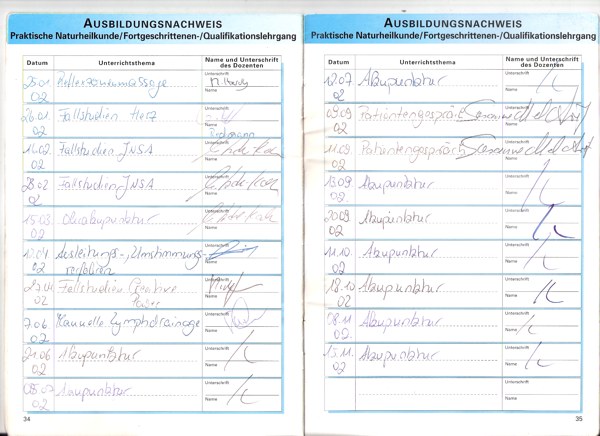 AUSBILDUNGSNACHWEIS
Praktische Naturheilkunde/Fortgeschrittenen-/Qualifikationslehrgang
Datum Unterrichtsthema Name und Unterschrift des Dozenten
25.01 02 Reflexzonenmassage Unterschrift Name
26.01 02 Fallstudien Herz Unterschrift Name
16.02 02 Fallstudien JNSA Unterschrift Name
02 Fallstudien JNSA Unterschrift Name
15.03 02 Ohrakupunktur Unterschrift Name
02 Ausleitungs-, Umstimmungs- Unterschrift
verfahren Name
02 Fallstudien Unterschrift Name
7.06 02 Manuelle Lymphdrainage Unterschrift Name
21.06 02 Akupunktur Unterschrift Name
02 Akupunktur Unterschrift Name
34
AUSBILDUNGSNACHWEIS
Praktische Naturheilkunde/Fortgeschrittenen-/Qualifikationslehrgang
Datum Unterrichtsthema Name und Unterschrift des Dozenten
02 Akupunktur Unterschrift Name
02 Patientengespräch Unterschrift Name
02 Patientengespräch Unterschrift Name
13.09 02 Akupunktur Unterschrift Name
20.09 02 Akupunktur Unterschrift Name
11.10. 02 Akupunktur Unterschrift Name
18.10 02 Akupunktur Unterschrift Name
08.11 02 Akupunktur Unterschrift Name
15.11. 02 Akupunktur Unterschrift Name
Unterschrift
Name
35